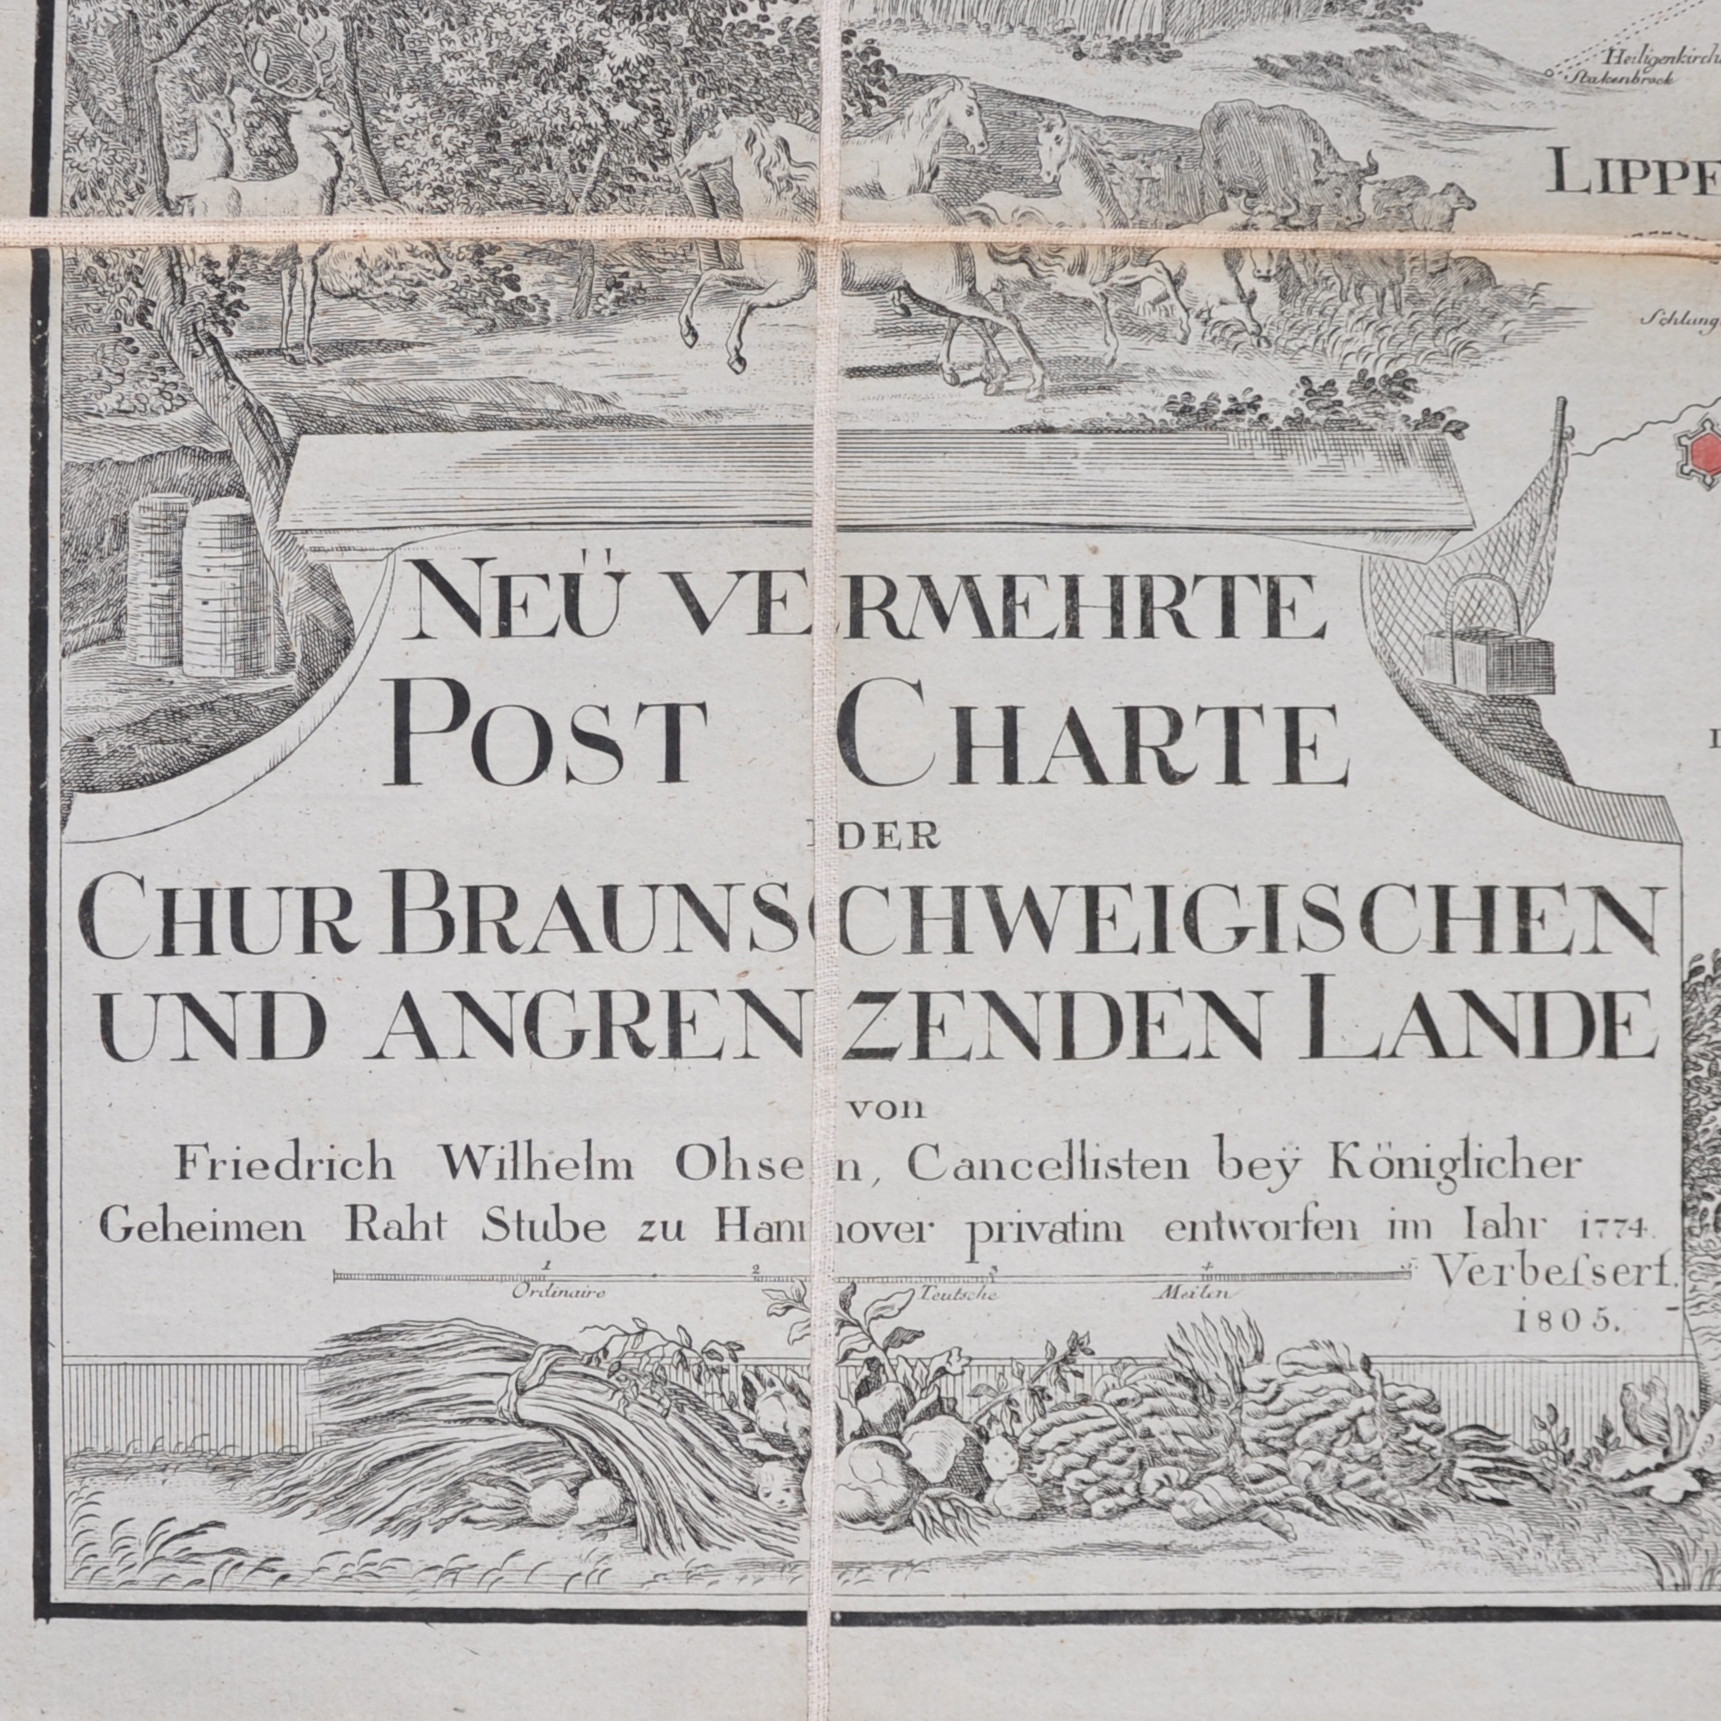 Stakenbrock
NEÜ VERMEHRTE
POST CHARTE
DER
CHUR BRAUNSCHWEIGISCHEN
UND ANGRENZENDEN LANDE
von
Friedrich Wilhelm Ohsen, Cancellisten beÿ Königlicher
Geheimen Raht Stube zu Hannover privatim entworfen im Iahr 1774.
1 2 3 4 5
Ordinaire Teutsche Meilen
Verbeſsert.
1805.